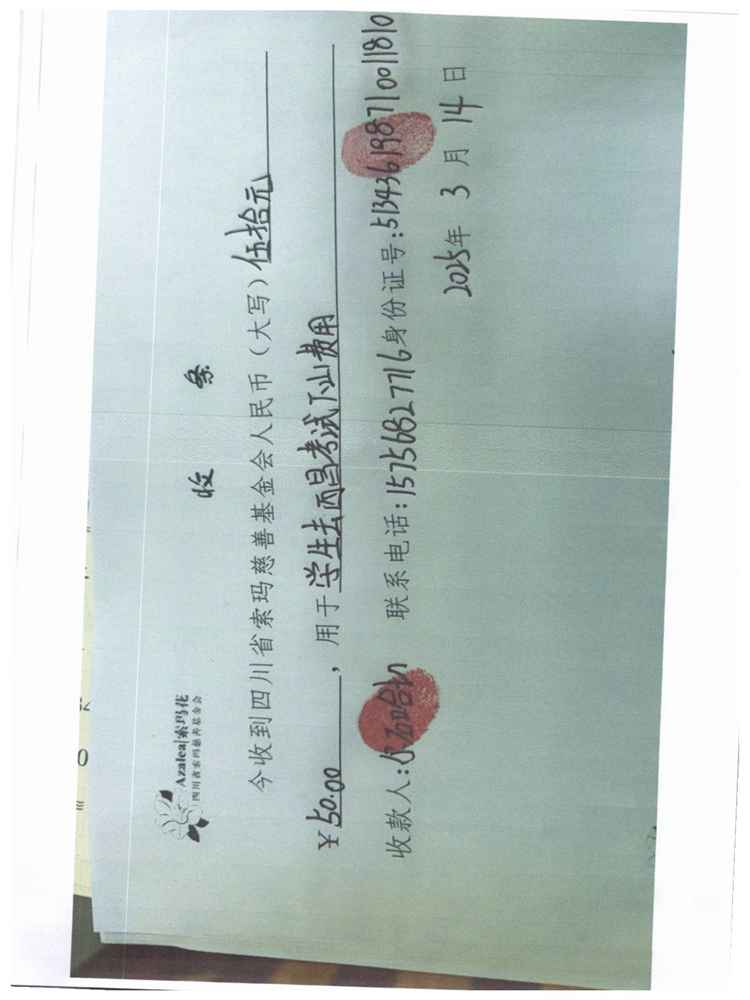 Azalea|索玛花
四川省索玛慈善基金会
收 条
今收到四川省索玛慈善基金会人民币（大写）伍拾元
￥50.00，用于学生去西昌考试下山费用
收款人： 联系电话：15756827716身份证号：513436198710011810
2025年3月14日